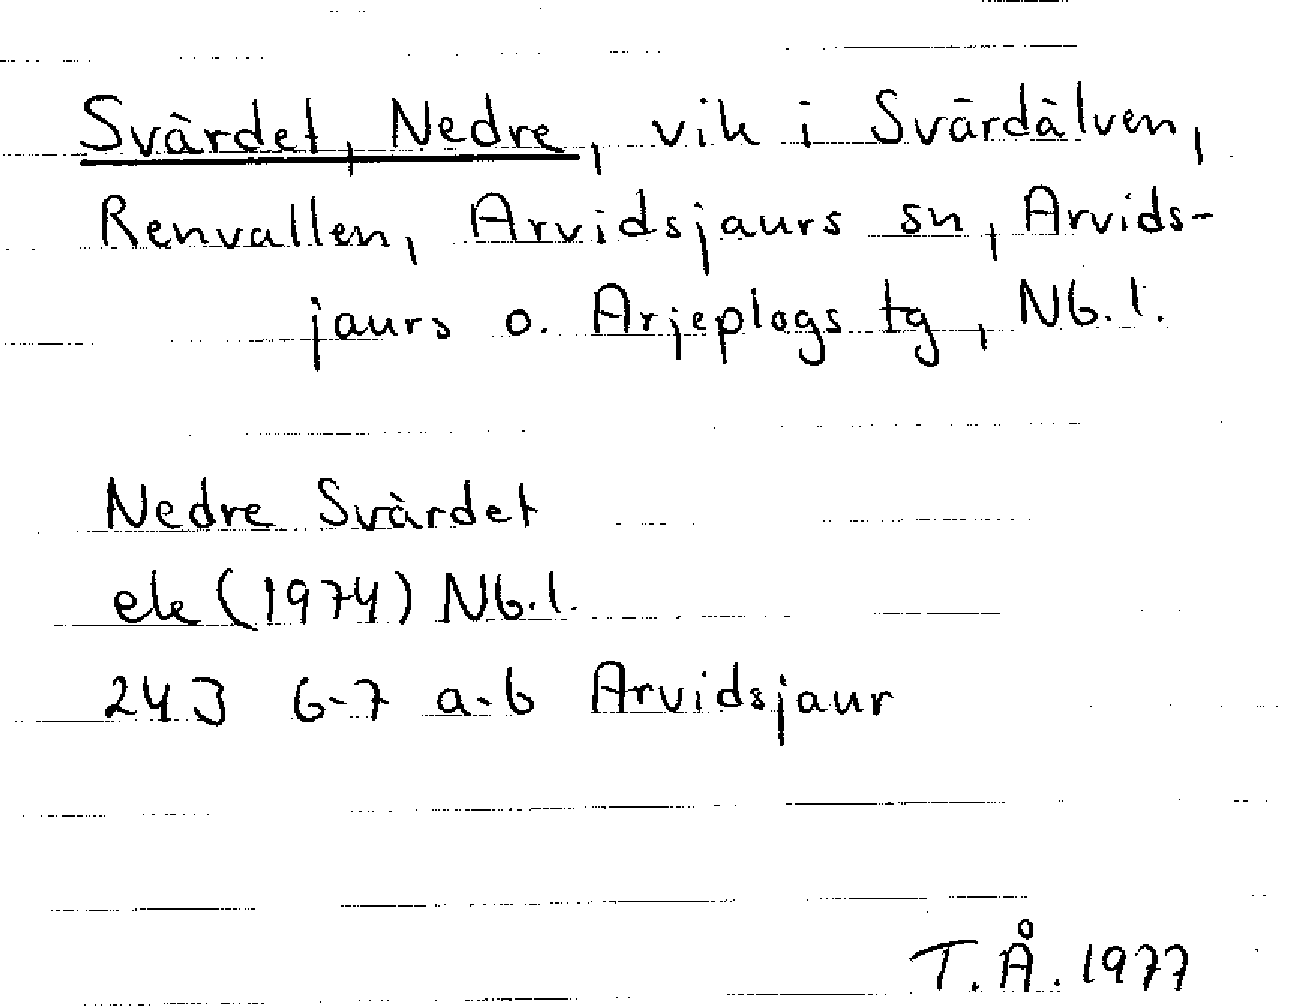 Svärdet, Nedre, vik i Svärdälven,
Renvallen, Arvidsjaurs sn, Arvids-
jaurs o. Arjeplogs tg, Nb. l.
Nedre Svärdet
ek (1974) Nb. l.
24J 6-7 a-b Arvidsjaur
T.Å. 1977